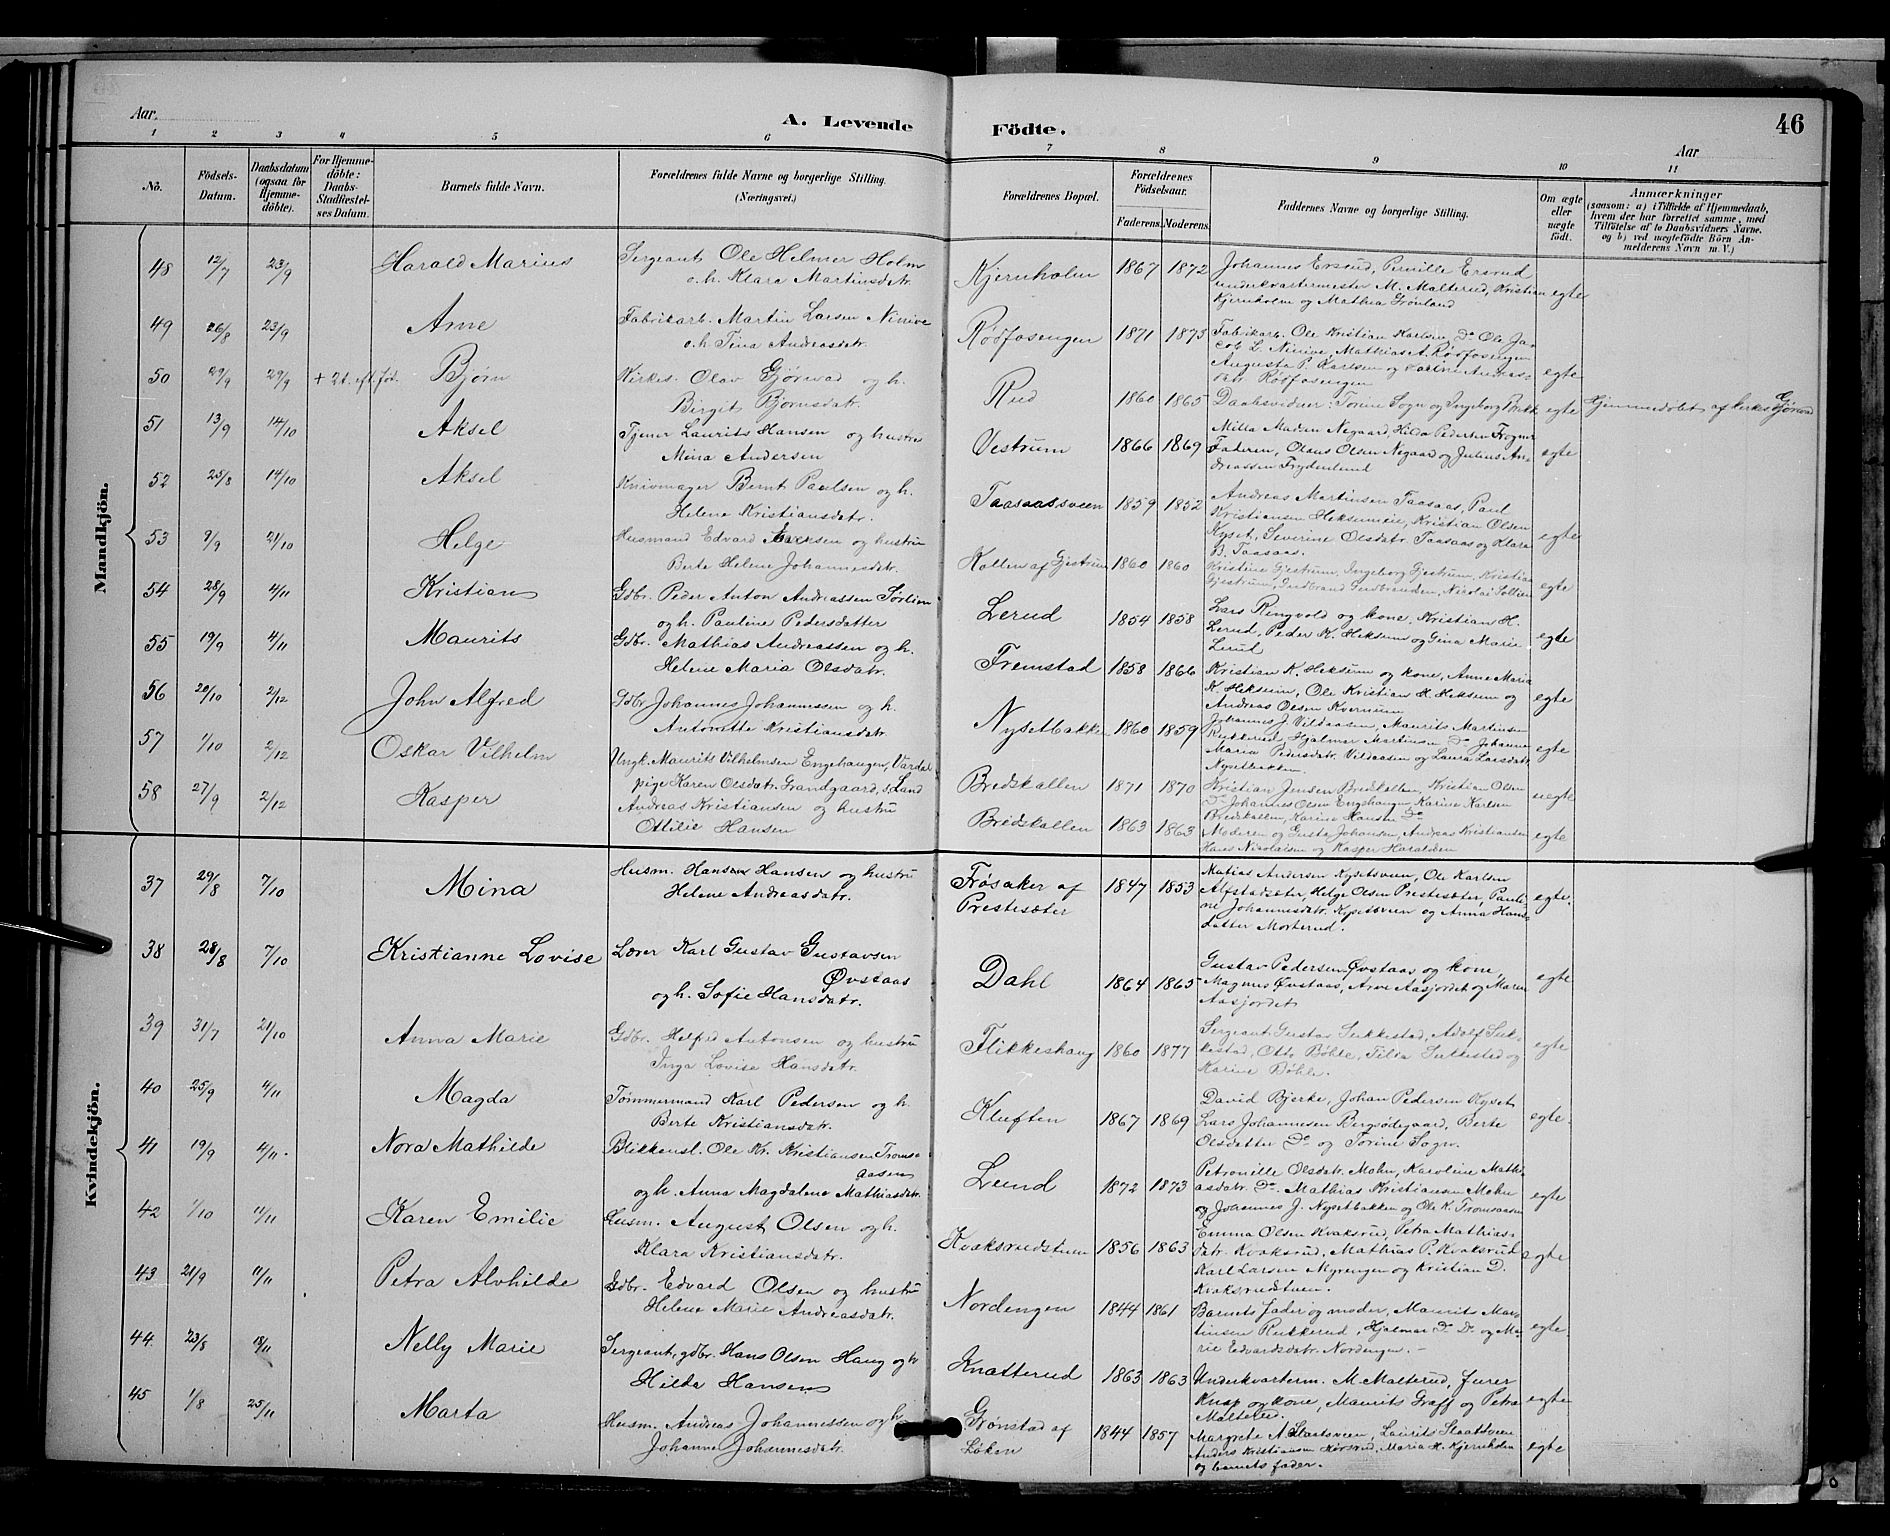 Aar.
A. Levende Födte.
46
Aar
1 2 3 4 5 6 7 8 9 10 11
No.
Födsels-Datum.
Daabsdatum (ogsaa for Hjemmedöbte).
For Hjemmedöbte: Daabs-Stadfæstelses Datum.
Barnets fulde Navn.
Forældrenes fulde Navne og borgerlige Stilling.
(Næringsvei.)
Forældrenes Bopæl.
Forældrenes Födselsaar.
Faderens. Moderens.
Faddernes Navne og borgerlige Stilling.
Om ægte eller uægte födt.
Anmærkninger
(saasom: a) i Tilfælde af Hjemmedaab, hvem der har forrettet samme, med Tilföielse af to Daabsvidners Navne. og b) ved uægtefödte Börn Anmelderens Navn m. V.)
Mandkjön.
48 12/7 23/9 Harald Marius
Sergeant Ole Helmer Holm
o.h. Klara Martinsdatr.
Kjernholm 1867 1872
Johannes Ersrud, Pernille Ersrud
underkvartermester M. Malterud, Kristian
Kjernholm og Mathea Grønland
egte
49 26/8 23/9 Arne
Fabrikarb. Martin Larsen Ninive
o.h. Tina Andreasdatr.
Rødfosengen 1871 1873
Fabrikarb. Ole Kristian Karlsen, Do Ole Jacob L. Ninive, Mathias A. Rødfosengen
Augusta P. Karlsen og Karine Andreasdatr. Rødfosengen
egte
50 29/9 29/9 + 2 t. eft. fød. Bjørn
Kirkes. Olav Gjørwad og h.
Birgit Bjørnsdatr.
Rud 1860 1865
Daabsvidner: Torine Sogn og Ingeborg Brekk
egte
Hjemmedøbt af kirkes. Gjørvad
51 13/9 14/10 Aksel
Tjener Laurits Hansen og hustru
Mina Andersen
Vestrum 1866 1869
Milla Madsen Negaard, Hilda Pedersen Frogner
Faderen, Olaus Olsen Negaard og Julius Andreassen Frydenlund
egte
52 25/8 14/10 Aksel
Knivmager Bernt Paulsen og h.
Helene Kristiansdatr.
Taasaassveen 1859 1852
Andreas Martinsen Taasaas, Paul
Kristiansen Heksumeie, Kristian Olsen
Kyset, Severine Olsdatr. Taasaas og Klara
B. Taasaas.
egte
53 9/9 21/10 Helge
Husmand Edvard Iversen og hustru
Berte Helene Johannesdatr.
Kollen af Gjestrum 1860 1860
Kristine Gjestrum, Ingeborg Gjestrum, Kristian
Gjestrum, Gudbrand Gudbranden, Nicolai Sollien
egte
54 28/9 4/11 Kristian
Gdbr. Peder Anton Andreassen Sørlien
og h. Pauline Pedersdatter
Lerud 1854 1858
Lars Ringvold og kone, Kristian H.
Lerud, Peder K. Heksum og Gina Marie
Lerud
egte
55 19/9 4/11 Maurits
Gdbr. Mathias Andreassen og h.
Helene Maria Olsdatr.
Fremstad 1858 1866
Kristian K. Heksum og kone, Anne Maria
K. Heksum, Ole Kristian H. Heksum og
Andreas Olsen Kvernum
egte
56 20/10 2/12 John Alfred
Gdbr Johannes Johannessen og h.
Antonette Kristiansdatr.
Nysetbakke 1860 1859
Johannes J. Vildaasen, Maurits Martinsen
Rukkerud, Hjalmar Martinsen Do Johanne
Maria Pedersdatr. Vildaasen og Laura Larsdatr.
Nysetbakken.
egte
57 1/10 2/12 Oskar Vilhelm
Ungk. Maurits Vilhelmsen Engehaugen, Vardal
pige Karen Olsdatr. Grandgaard, s. Land
Bredskallen 1871 1870
Kristian Jensen Bredskallen, Kristian Olsen
Do Johannes Olsen Engehaugen, Karine Karlsen
Bredskallen, Karine Hansen Do
uegte
58 27/9 2/12 Kasper
Andreas Kristiansen og hustru
Ottilie Hansen
Bredskallen 1863 1863
Moderen og Gusta Johansen, Andreas Kristiansen
Hans Nicolaisen og Kasper Haraldsen
egte
Kvindekjön.
37 29/8 7/10 Mina
Husm. Hans Hansen og hustru
Helene Andreasdatr.
Frøsaker af
Prestesæter
1847 1853
Matias Andersen Kysetsveen, Ole Karlsen
Alfstadsæter, Helge Olsen Prestesæter, Pauline Johannesdatr. Kysetsveen og Anna Hansdatter Morterud.
egte.
38 28/8 7/10 Kristianne Lovise
Lærer Karl Gustav Gustavsen
Øvstaas
og h. Sofie Hansdatr.
Dahl 1864 1865
Gustav Pedersen Øvstaas og kone,
Magnus Øvstaas, Arve Aasjordet og Maren
Aasjordet
egte
39 31/7 21/10 Anna Marie
Gdbr. Helfred Antonsen og hustru
Inga Lovise Hansdatr.
Flikkeshaug 1860 1877
Sergeant Gustav Sukkestad, Adolf Sukkestad, Otto Bøhle, Tilda Sukkestad og
Karine Bøhle.
egte
40 25/9 4/11 Magda
Tømmermand Karl Pedersen og h.
Berte Kristiansdatr.
Kluften 1867 1869
David Bjerke, Johan Pedersen Kyset
Lars Johannesen Bergsødegaard, Berte
Olsdatter Do og Torine Sogn.
egte.
41 19/9 4/11 Nora Mathilde
Blikkensl. Ole Kr. Kristiansen Tromsaasen
og h. Anna Magdalene Mathiasdatr.
Lund 1872 1873
Petronille Olsdatr. Mohn, Karoline Mathiasdatr. Do. Mathias Kristiansen Mohn
og Johannes J. Nysetbakken og Ole K. Tromsaasen
egte
42 1/10 11/11 Karen Emilie
Husm. August Olsen og h.
Klara Kristiansdatr.
Kvaksrudstuen 1856 1863
Emma Olsen Kvaksrud, Petra Mathiasdatr. Kvaksrud, Mathias P. Kvaksrud
Karl Larsen Myrengen og Kristian D.
Kvaksrudstuen.
egte
43 21/9 11/11 Petra Alvhilde
Gdbr. Edvard Olsen og hustru
Helene Marie Andreasdatr.
Nordengen 1844 1861
Barnets fader og moder, Maurits Martinsen Rukkerud, Hjalmar Do Do og Marie Edvardsdatr. Nordengen.
egte
44. 23/8 18/11 Nelly Marie
Sergeant, gdbr. Hans Olsen Haug og h
Hilda Hansen
Knatterud 1863 1863
Underkvarterm. M. Malterud, furer
Knap og kone, Maurits Graff og Petra
Malterud.
egte
45 1/8 25/11 Marta
Husm. Andreas Johannessen og h
Johanne Johannesdatr.
Grønstad af
Løken
1844 1857
Margrete A. Slaatsveen, Laurits Slaattsveen
Anders Kristiansen Kørsrud, Maria H. Kjernholm
og barnets fader.
egte